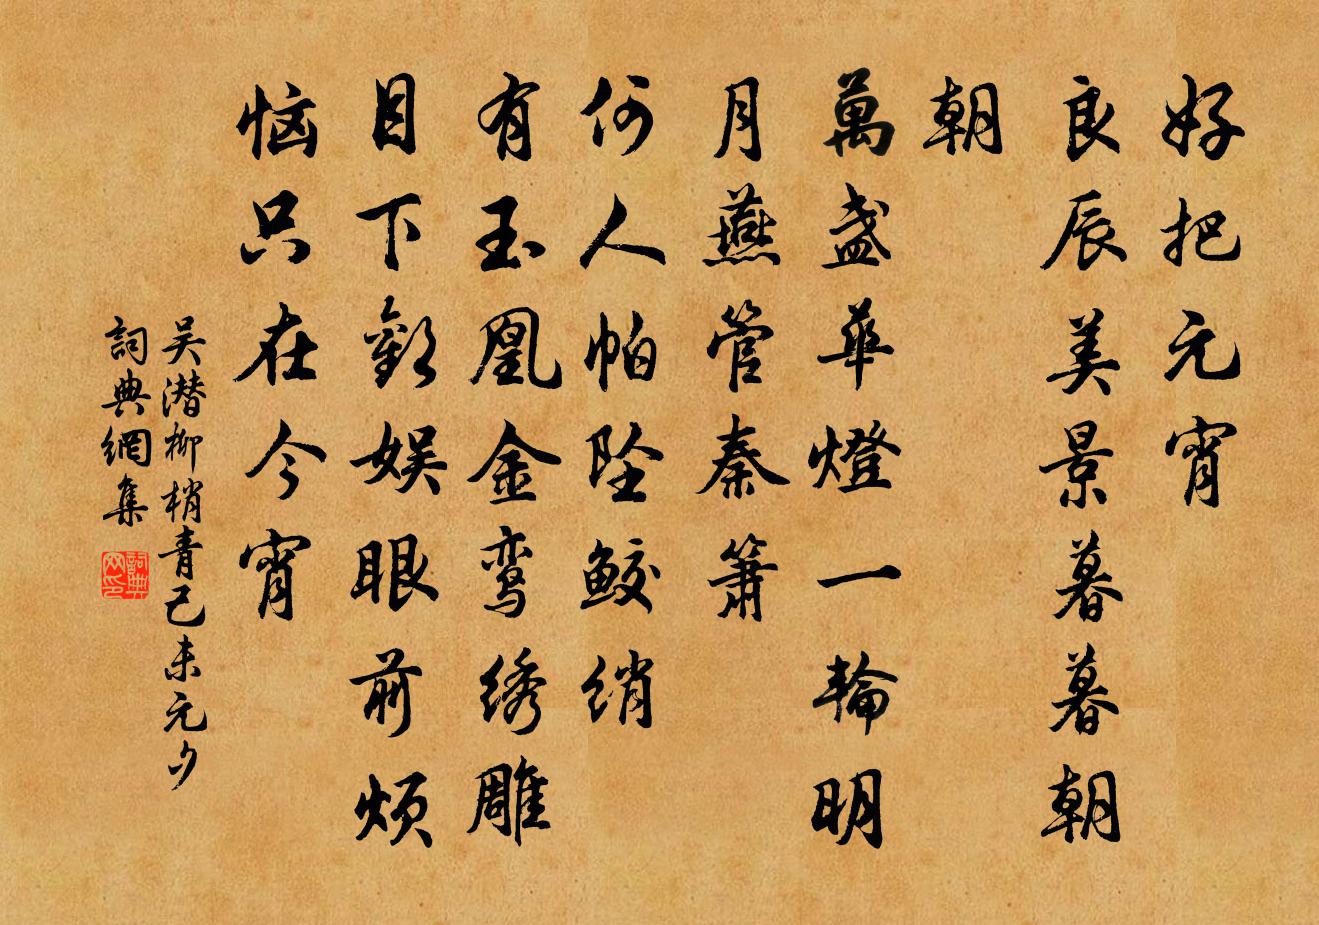 好把元宵
良辰美景暮暮朝
朝
萬盞華燈一輪明
月燕管秦箫
何人帕坠鲛绡
有玉凰金鸾绣雕
目下歡娱眼前烦
恼只在今宵
吴潜柳梢青己未元夕
詞典網集
詞典網印